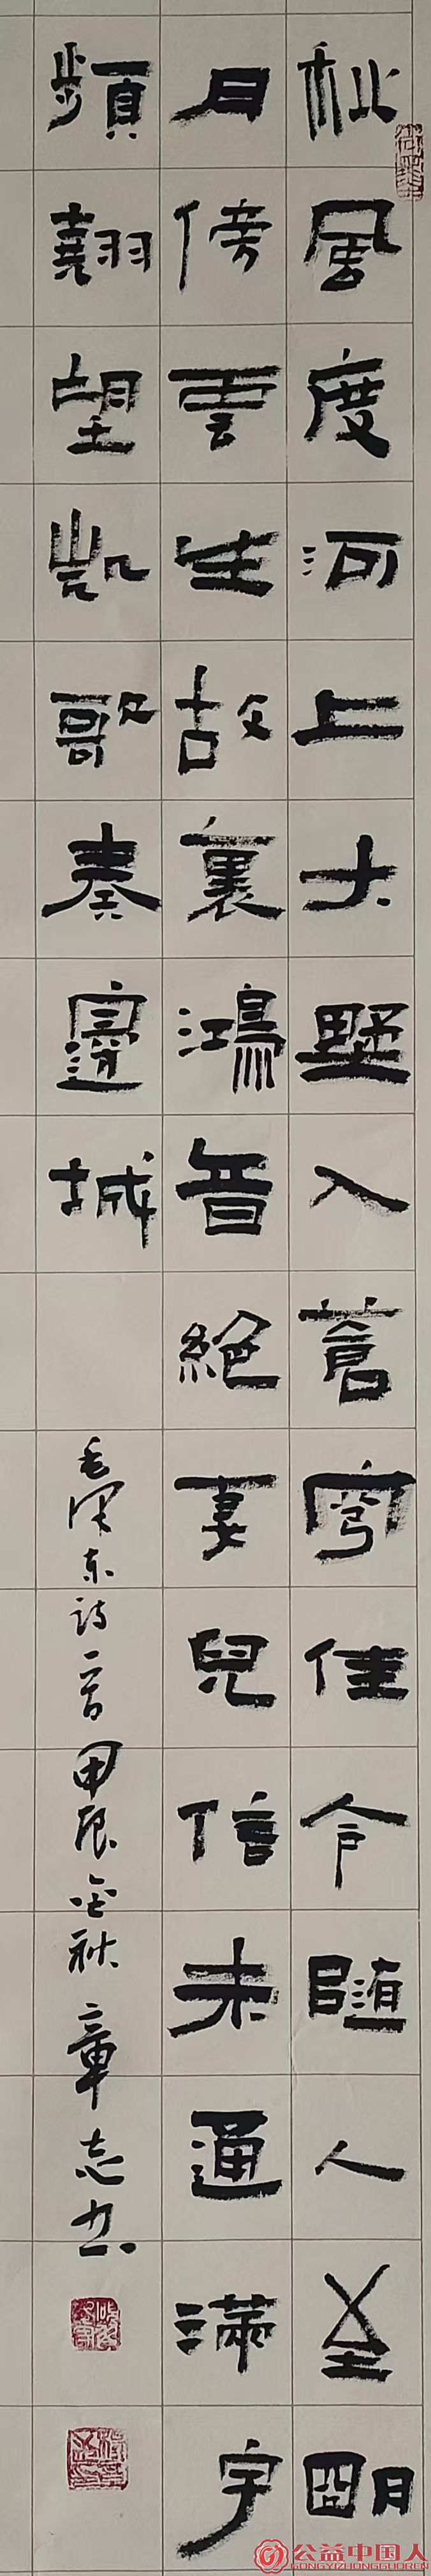 秋風度河上大墅入蒼穹佳令隨人至朙
月傍雲生故裏鴻音絕妻兒信未通滿宇
頻翹望凱歌奏邊城
毛澤东詩一首甲辰金秋章志书
公益中国人
GONGYIZHONGGUOREN